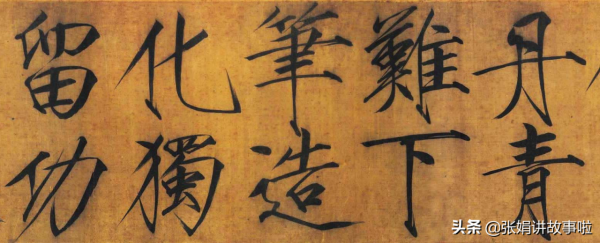 丹青
難下
筆造
化獨
留功
头条 @张娟讲故事啦